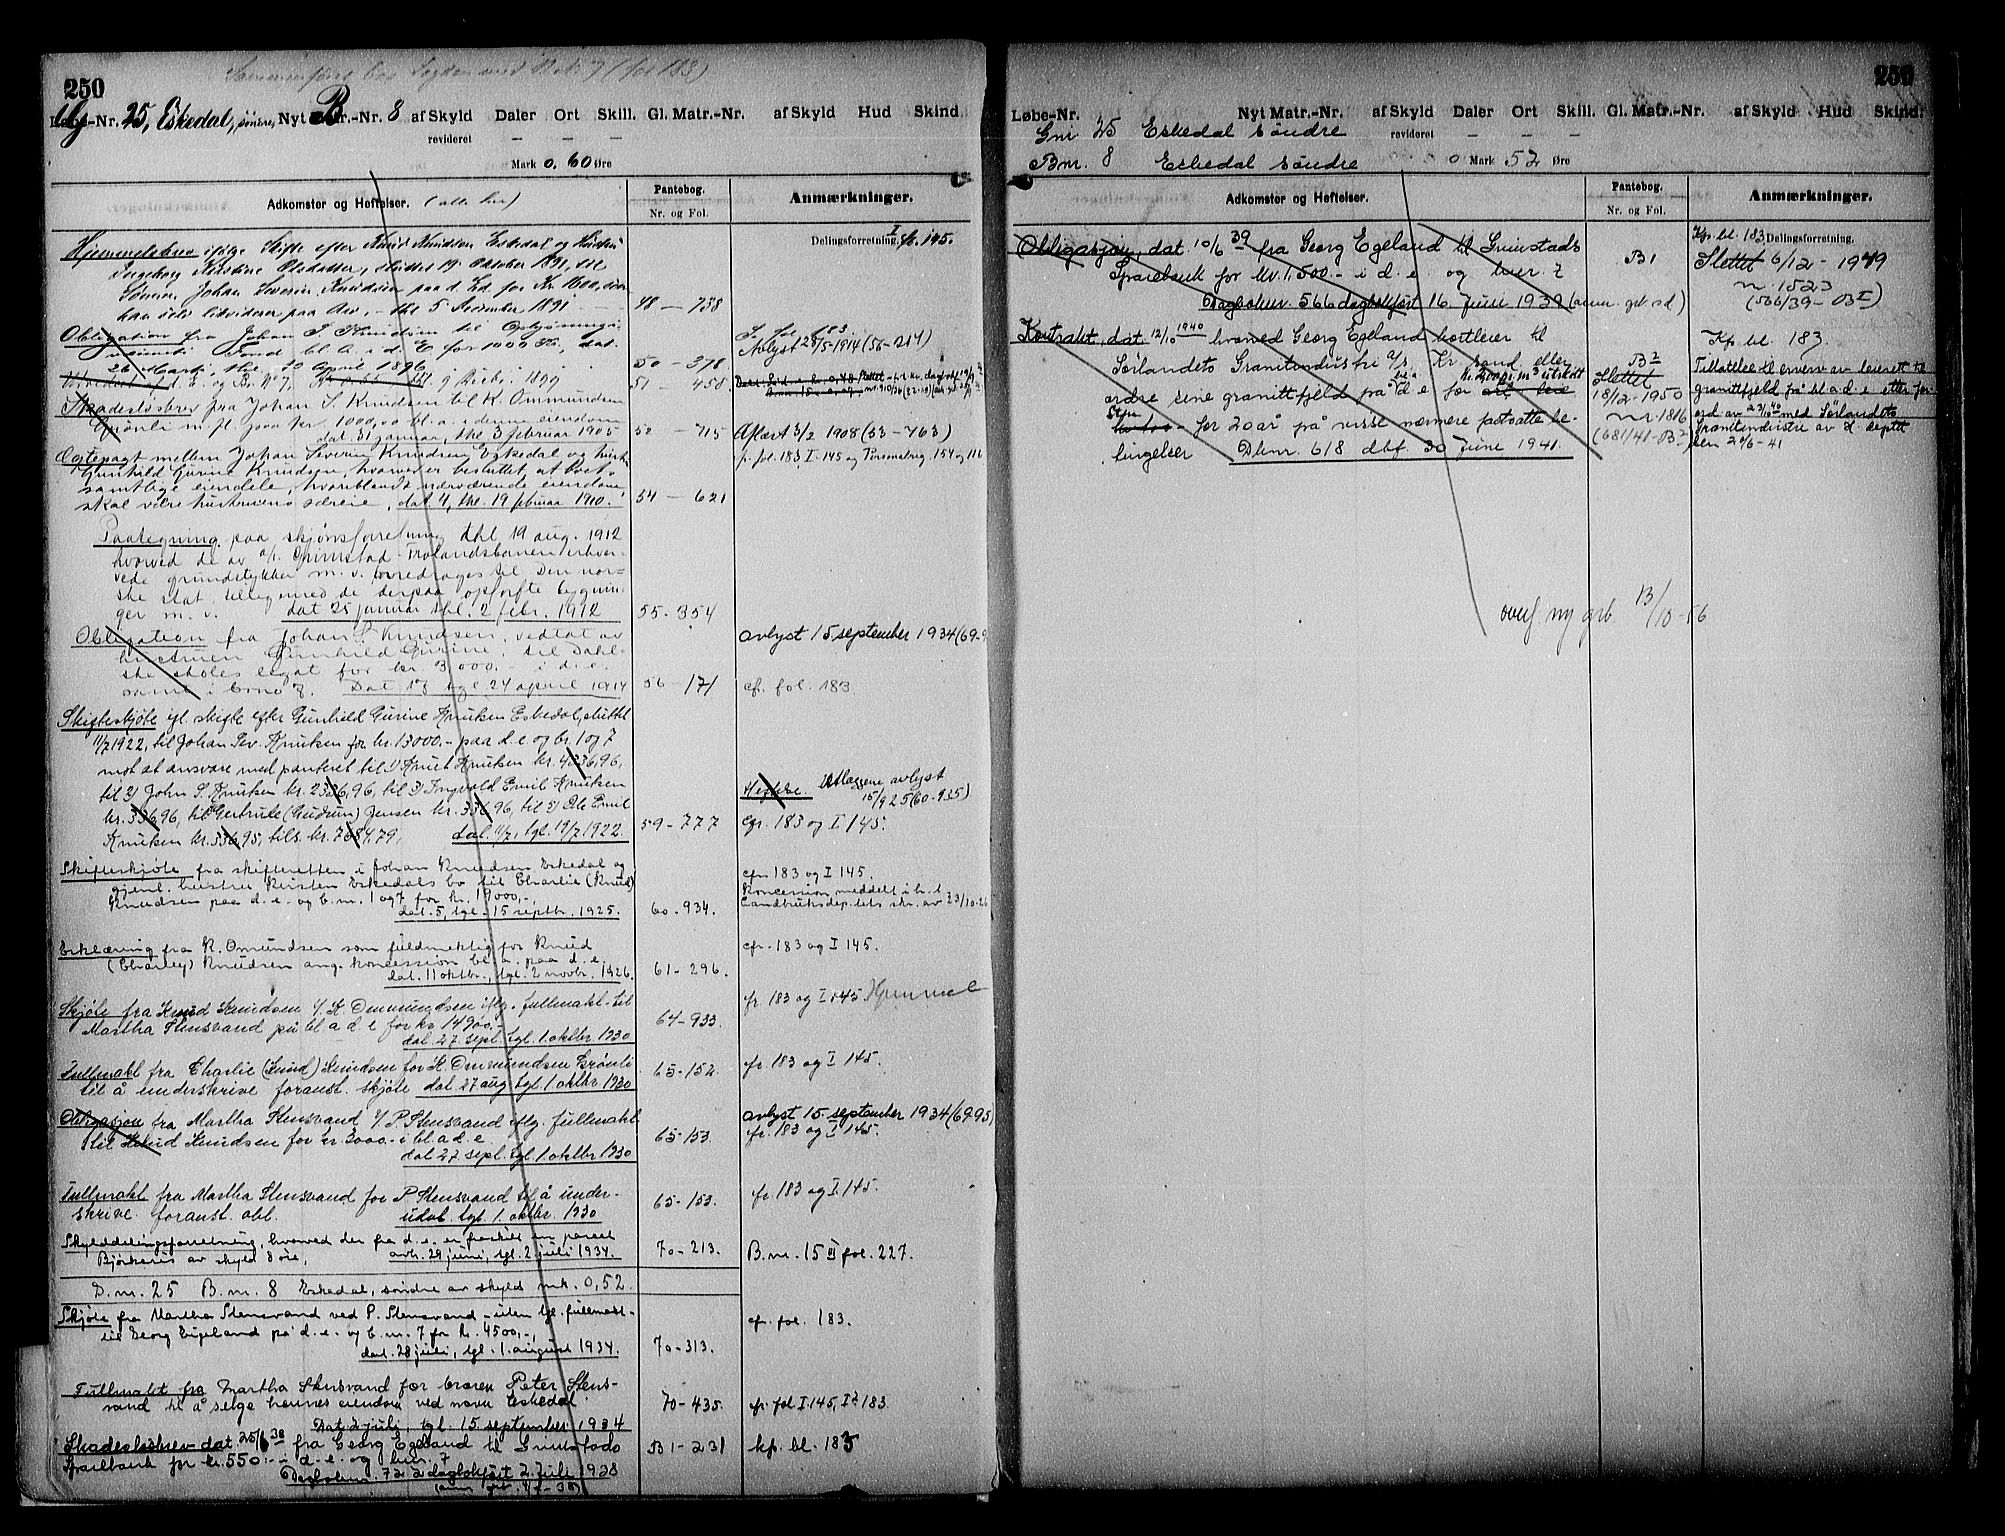 250
Sammenføiet hos Sogden med B. Nr 7 (fol 183)
G.-Nr. 25, Eskedal, søndre, Nyt B.-Nr. 8 af Skyld Daler Ort Skill. Gl. Matr.-Nr. af Skyld Hud Skind.
revideret — — —
Mark 0. 60 Øre
Adkomster og Heftelser. (alle her)
Pantebog.
Nr. og Fol.
Anmærkninger.
Delingsforretning I fo. 145.
Hjemmelsbrev ifølge Skifte efter Knud Knudsen Eskedal og Hustru
Ingeborg Kirstine Olsdatter, sluttet 19 Oktober 1891, til
Sønnen Johan Severin Knudsen paa d. Ed. for Kr 1800, som
han selv likviderer paa Arv, thl. 5 December 1891
48 — 738
Obligation fra Johan S. Knudsen til Oplysnings-
væsenets Fond bl. a. i d. E. for 1000 Kr., dat.
26 Marts, thl. 10 April 1896
50 — 378
I. fol. 183
Avlyst 28/5-1914 (56-214)
51 — 458
Skadesløsbrev fra Johan S. Knudsen til K. Ommundsen
Grønli m. fl. paa kr. 1000,00 bl. a. i denne eiendom
dat. 31 januar, thl. 3 februar 1905
52 — 715
Aflæst 3/2 1908 (53-763)
Egtepagt mellem Johan Severin Knudsen Eskedal og hustru
Gunhild Gurine Knudsen, hvorved er besluttet, at boets
samtlige eiendele, hvoriblandt nærværende eiendom
skal være hustruens særeie, dat. 4, thl. 19 februar 1910.
54 — 621
fr. fol. 183 I. 145 og Personalreg 154 og 116
Paategning paa skjønsforretning thl 19 aug. 1912
hvorved de av a/s. Grimstad-Frolandsbanen erhver-
vede grundstykker m. v. overdrages til Den nor-
ske stat, tillegemed de derpaa opførte bygnin-
ger m. v. dat 25 januar thl. 2 febr. 1912
55-354
Obligation fra Johan S. Knudsen, vedtat av
hustruen Gunhild Gurine, til Dahl-
ske skoles legat for kr. 3000.- i d. e.
samt i brno 7. Dat 18 tgl 24 april 1914
56-171
avlyst 15 september 1934 (69-9
cfr. fol. 183.
Skifteskjøte ifl. skifte efter Gunhild Gurine Knutsen Eskedal, sluttet
11/7 1922, til Johan Sev. Knutsen for kr. 13000.- paa d. e. og br. 1 og 7
mot at ansvare med panteret til 1) Knut Knutsen kr. 4336,96,
til 2) John S. Knutsen kr. 2336,96, til 3) Ingvald Emil Knutsen
kr. 336,96, til 4) Gertrude (Gudrun) Jensen kr. 336,96, til 5) Ole Emil
Knutsen kr. 336,95, tils. kr. 7684,79, dat. 11/7, tgl. 19/7 1922.
59-777
Heftelse. Utlæggene avlyst
15/9 25 (60-935)
Cfr. 183 og I 145.
Skifteskjøte fra skifteretten i Johan Knudsen Eskedal og
gjenl. hustru Kirsten Eskedals bo til Charlie (Knud)
Knudsen paa d. e. og b. nr. 1 og 7 for kr. 19000,-,
dat. 5, tgl. 15 septbr. 1925.
60-934.
cfr 183 og I 145.
Koncession meddelt i h. t.
Landbruksdep.tets skr. av 23/10-26
Erklæring fra K. Omundsen som fuldmektig for Knud
(Charley) Knudsen ang. koncession bl. a. paa d. e.
dat. 11 oktbr., tgl. 2 novbr. 1926.
61-296.
cfr. 183 og I 145.
Skjøte fra Knud Knudsen v/ K Ommundsen iflg. fullmakt til
Martha Stensvand på bl a d e for kr 14900.-
dat. 27 sept. tgl. 1. oktbr 1930
64-933.
fr 183 og I 145 Hjemmel
Fullmakt fra Charlie (Knud) Knudsen for K. Ommundsen Grønli
til å underskrive foranst. skjøte dat. 27 aug tgl. 1. oktbr 1930
65-152.
fr 183 og I 145.
Obligasjon fra Martha Stensvand v/ P. Stensvand iflg. fullmakt
til Knud Knudsen for kr 3000.- i bl a d e.
dat 27 sept. tgl. 1. oktbr 1930
65-153.
avlyst 15 september 1934 (69-95)
fr. 183 og I 145.
Fullmakt fra Martha Stensvand for P Stensvand til å under-
skrive foranst. obl. udat. tgl 1. oktbr. 1930
65-153.
fr. 183 og I. 145.
Skylddelingsforretning, hvorved der fra d. e. er fraskilt en parsell
Bjørkenes av skyld 8 øre, avh. 29 juni, tgl. 2 juli 1934.
70-213.
B. nr. 15 III fol. 227.
G. nr. 25 B. nr. 8 Eskedal, søndre av skyld mk. 0,52.
Skjøte fra Martha Stensvand ved P. Stensvand - uten tgl. fullmakt -
til Georg Egeland på d. e. og b. nr. 7 for kr. 4500,-,
dat. 28 juli, tgl. 1. august 1934.
70-313.
cfr. fol. 183.
Fullmakt fra Martha Stensvand for broren Peter Stens-
vand til å selge hennes eiendom ved navn Eskedal
Dat 2 juli, tgl. 15. september 1934
70-435.
fr. fol I 145, I 2 183.
Skadesløsbrev dat 25/6 38 fra Georg Egeland til Grimstads
Sparebank for kr. 550.- i d. e. og bnr. 7
Dagboknr. 722 dagbokført 2. juli 1938
B 1-231
kfr. bl. 183
250
Løbe-Nr. Nyt Matr.-Nr. af Skyld Daler Ort Skill. Gl. Matr.-Nr. af Skyld Hud Skind.
Gnr 25 Eskedal søndre revideret — — —
Bnr. 8 Eskedal søndre 0 Mark 52 Øre
Adkomster og Heftelser.
Pantebog.
Nr. og Fol.
Anmærkninger.
Kfr. bl. 183 Delingsforretning.
Obligasjon, dat 10/6 39 fra Georg Egeland til Grimstads
Sparebank for kr. 1,500.- i d. e. og bnr. 7
Dagboknr. 566 dagbokført 16. juni 1939 (anm. grb. s d)
B 1
Slettet 6/12-1949
nr. 1523
(566/39-B I)
Kontrakt, dat 12/10 1940 hvorved Georg Egeland bortleier til
Sørlandets Granitindustri a/s, Kr.sand eller
ordre sine granittfjeld på d e for
Kr. 2.00 pr. m³ utskutt
Sten for 20 år på visse nærmere fastsatte be-
tingelser Dbnr. 618 dbf. 30 juni 1941.
B 2
Slettet
18/12-1950
nr 1816
(681/41-B 2)
Kfr. bl. 183.
Tillatelse til erverv av leierett til
granittfjeld på bl. a d. e etter for
ord av 23/10 40 med Sørlandets
Granitindustri av L. deptt
den 20/6-41
overf. ny grb. 13/10-56